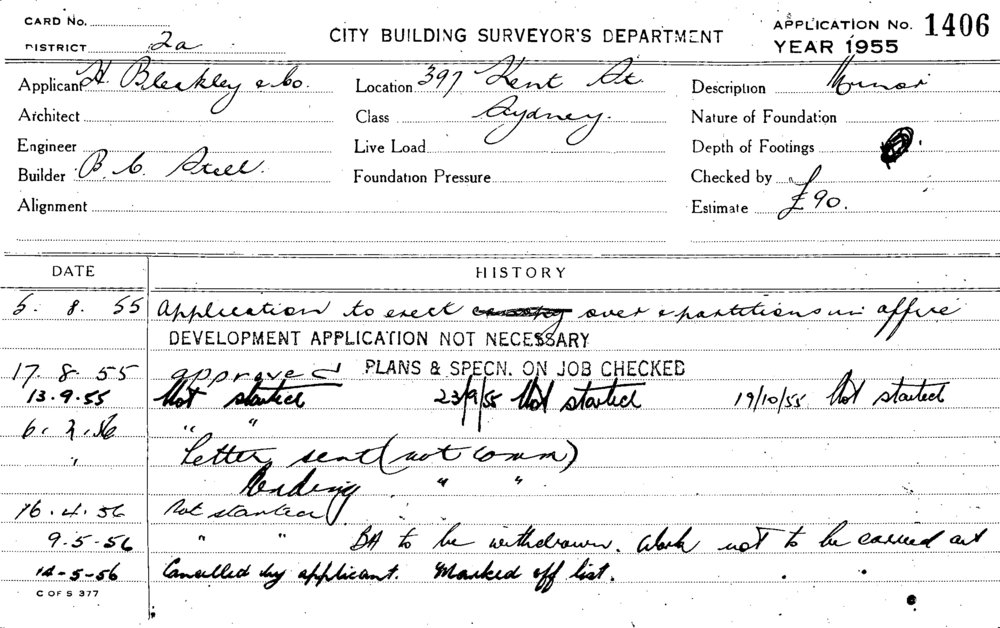 CARD No.
DISTRICT 2a
CITY BUILDING SURVEYOR'S DEPARTMENT
APPLICATION No. 1406
YEAR 1955
Applicant H. Bleakley & Co.
Location 397 Kent St.
Description Minor
Architect
Class Sydney.
Nature of Foundation
Engineer
Live Load
Depth of Footings
Builder B. C. Steel.
Foundation Pressure
Checked by
Alignment
Estimate £90.
DATE HISTORY
5. 8. 55 Application to erect over & partitions in office
DEVELOPMENT APPLICATION NOT NECESSARY
17. 8. 55 approved PLANS & SPECN. ON JOB CHECKED
13.9.55 Not started 23/9/55 Not started 19/10/55 Not started
6. 2. 56 " "
" Letter sent (not comm)
Pending " "
16.4.56 Not started
9.5-56 " " BA to be withdrawn. Work not to be carried out
14-5-56 Cancelled by applicant. Marked off list.
C OF S 377